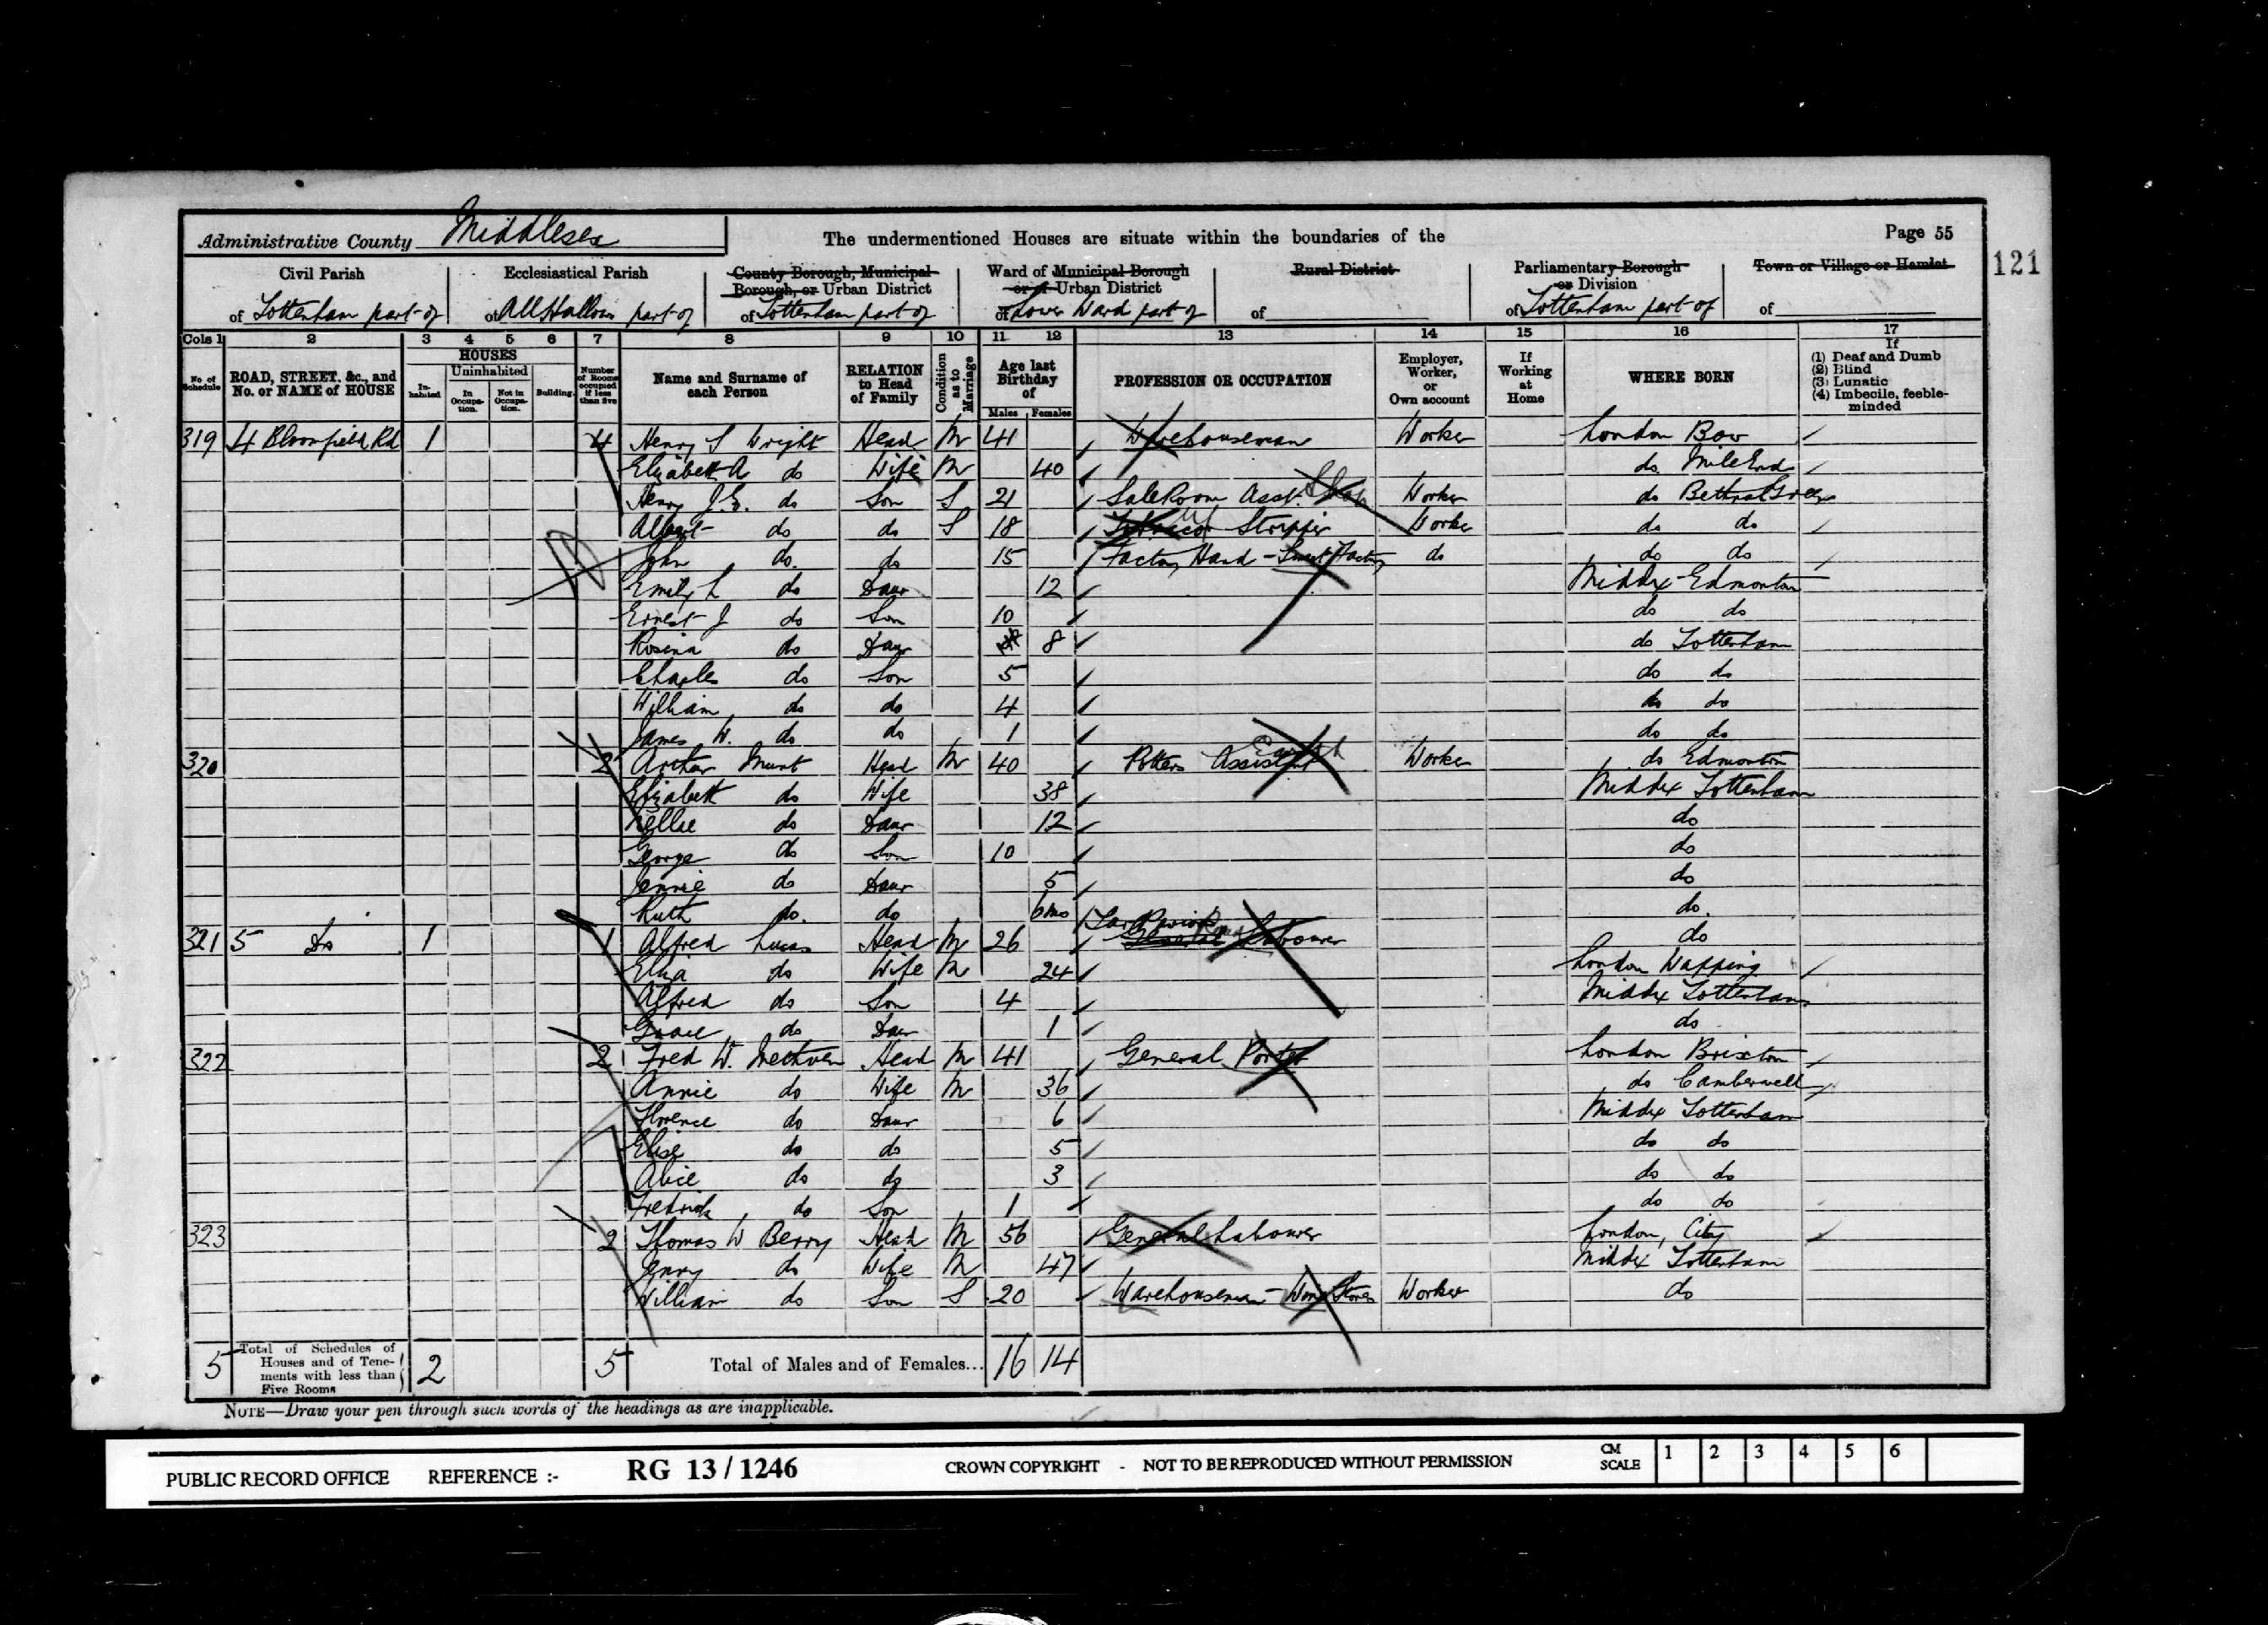 Administrative County Middlesex
The undermentioned Houses are situate within the boundaries of the
Page 55
121
Civil Parish
of Tottenham part of
Ecclesiastical Parish
of All Hallows part of
County Borough, Municipal Borough, or Urban District
of Tottenham part of
Ward of Municipal Borough or of Urban District
of Lower Ward part of
Rural District
of
Parliamentary Borough or Division
of Tottenham part of
Town or Village or Hamlet
of
Cols 1 2 3 4 5 6 7 8 9 10 11 12 13 14 15 16 17
No. of Schedule
ROAD, STREET, &c., and No. or NAME of HOUSE
HOUSES
Inhabited
Uninhabited
In Occupation.
Not in Occupation.
Building.
Number of Rooms occupied if less than five
Name and Surname of each Person
RELATION to Head of Family
Condition as to Marriage
Age last Birthday of
Males Females
PROFESSION OR OCCUPATION
Employer, Worker, or Own account
If Working at Home
WHERE BORN
If
(1) Deaf and Dumb
(2) Blind
(3) Lunatic
(4) Imbecile, feeble-minded
319 4 Bloomfield Rd 1 4 Henry S Wright Head M 41 Warehouseman Worker London Bow
Elizabeth A do Wife M 40 do Mile End
Henry J.E. do Son S 21 Sale Room Asst. Worker do Bethnal Green
Albert do do S 18 Tobacco Stripper Worke do do
John do. do 15 Factory Hand - Factory do do do
Emily L do Daur 12 Middx Edmonton
Ernest J do Son 10 do do
Rosina do Daur 8 do Tottenham
Charles do Son 5 do do
William do do 4 do do
James W. do do 1 do do
320 2 Arthur Munt Head M 40 Potters Assistant Worker do Edmonton
Elizabeth do Wife 38 Middx Tottenham
Nellie do Daur 12 do
George do Son 10 do
Jennie do Daur 5 do
Ruth do. do 6 mo do.
321 5 Do 1 1 Alfred Lucas Head M 26 General Labourer do
Eliza do Wife M 24 London Wapping
Alfred do Son 4 Middx Tottenham
Grace do Daur 1 do
322 2 Fred W. Methven Head M 41 General Porter London Brixton
Annie do Wife M 36 do Camberwell
Florence do Daur 6 Middx Tottenham
Elise do do 5 do do
Alice do do 3 do do
Fredrick do Son 1 do do
323 2 Thomas W Berry Head M 56 General Labourer London, City
Jenny do Wife M 47 Middx Tottenham
William do Son S 20 Warehouseman - Wine Stores Worker do
5 Total of Schedules of Houses and of Tenements with less than Five Rooms 2 5 Total of Males and of Females... 16 14
NOTE—Draw your pen through such words of the headings as are inapplicable.
PUBLIC RECORD OFFICE REFERENCE :- RG 13 / 1246 CROWN COPYRIGHT - NOT TO BE REPRODUCED WITHOUT PERMISSION CM SCALE 1 2 3 4 5 6